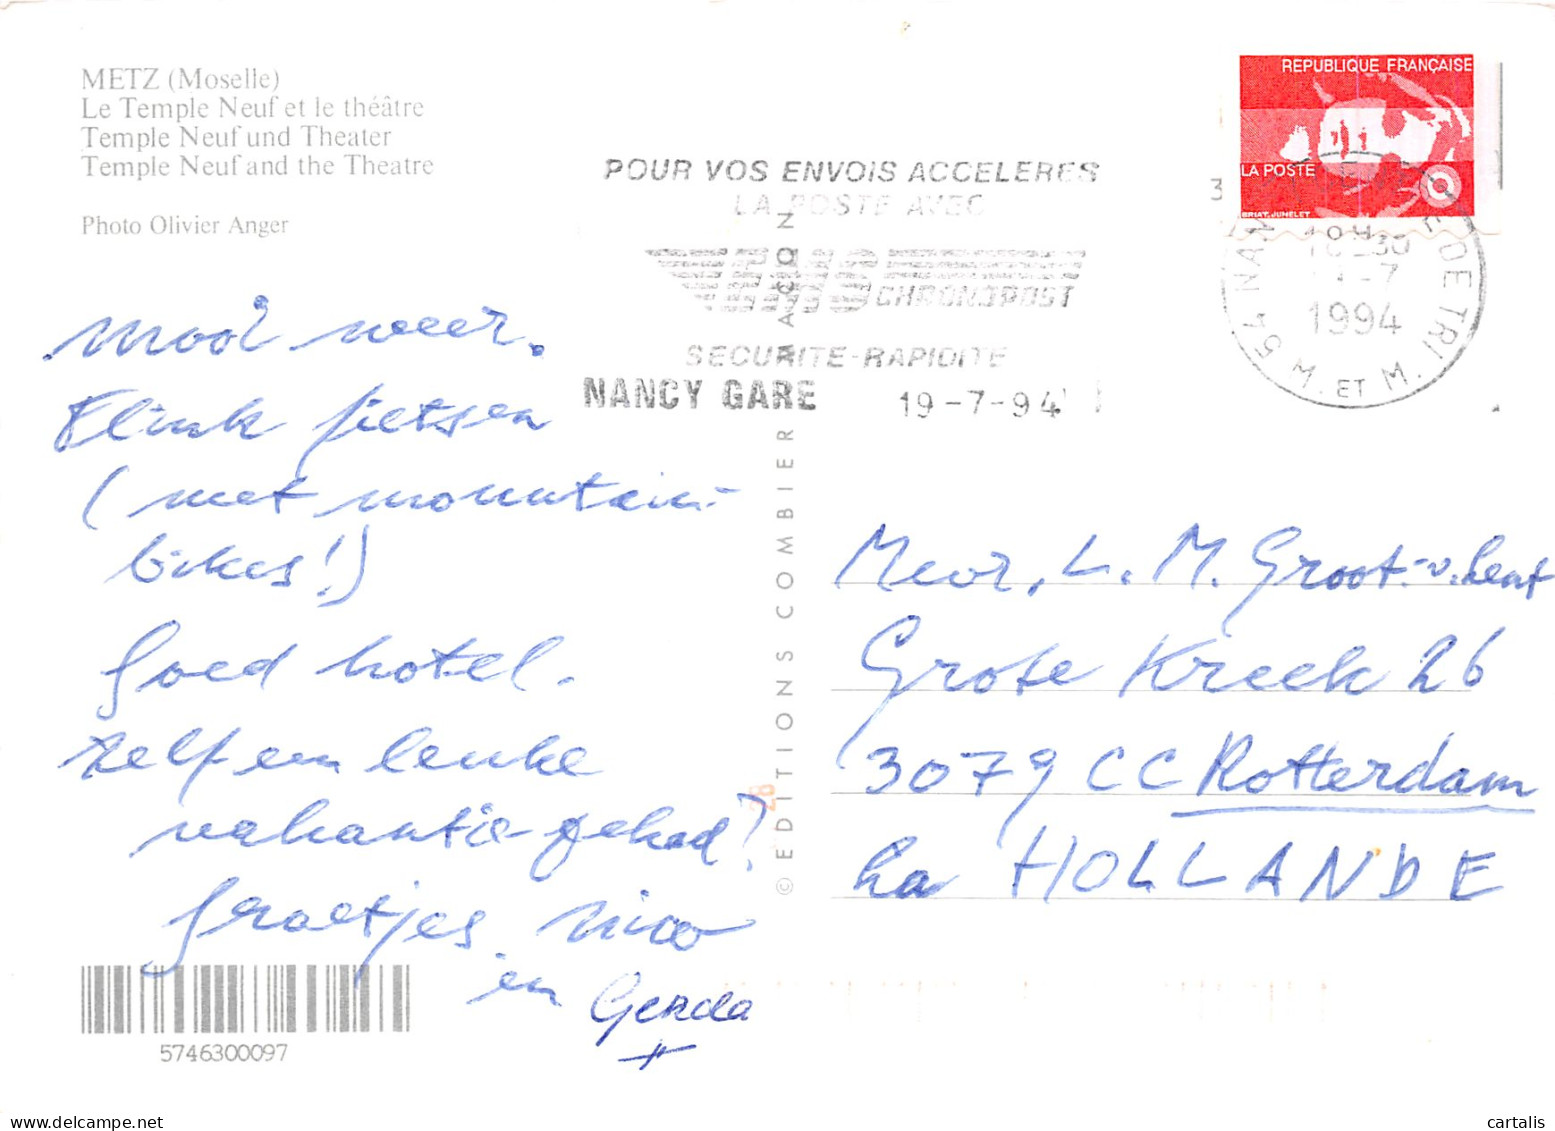 METZ (Moselle)
Le Temple Neuf et le théâtre
Temple Neuf und Theater
Temple Neuf and the Theatre
Photo Olivier Anger
mooi weer.
Flink fietsen
(met mountain-
bikes!)
Goed hotel.
zelf een leuke
vakantie gehad?
Groetjes Nico
en Gerda
5746300097
© EDITIONS COMBIER MACON
28
POUR VOS ENVOIS ACCELERES
LA POSTE AVEC
EMS CHRONOPOST
SECURITE-RAPIDITE
NANCY GARE 19-7-94
REPUBLIQUE FRANÇAISE
LA POSTE
BRIAT. JUMELET
54 NAN DE TRI
M. ET M.
1994
Mevr. L. M. Groot-v. Gent
Grote Kreek 26
3079 CC Rotterdam
La HOLLANDE
cartalis